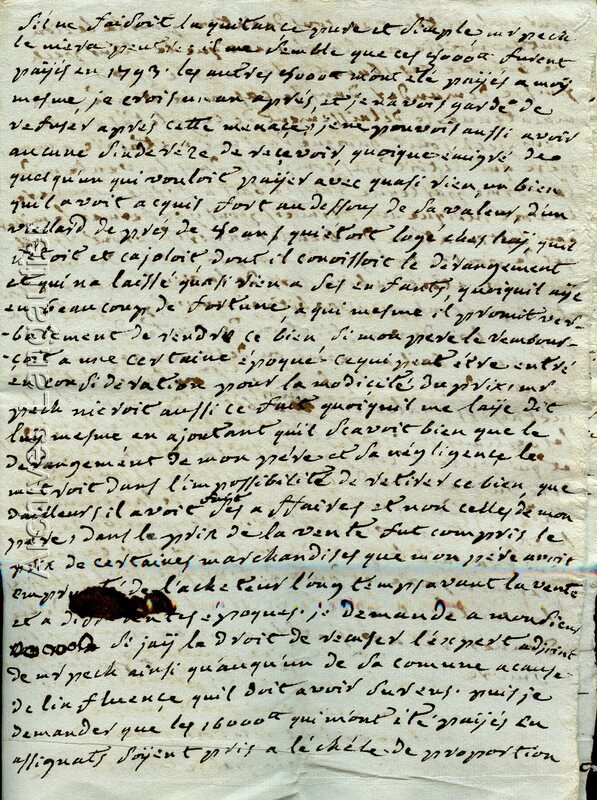 s'il ne faisoit la quitance pure et simple, mr peck
le niera peut etre, il me semble que ces 4000# furent
paijés en 1793. les autres 4000# mont été paijés a moy
mesme je crois un an aprés, et je n'avois garde de
refuser aprés cette menace, je ne pouvois aussi avoir
aucune sinderéze de recevoir, quoique émigré, de
quelqu'un qui vouloit paijer avec quasi rien, un bien
quil avoit acquis fort au dessous de sa valeur, d'un
viellard de pres de ans, qui etoit logé ches luy, quil
et cajoloit dont il conoissoit le dérangement
et qui na laissé quasi rien a ses enfants, quoiquil aÿe
eu beaucoup de fortune, a qui mesme il promit ver-
-balement de rendre ce bien, si mon pere le rembour-
-soit a une certaine époque. ce qui peut etre entré
en considération pour la modicité du prix. mr
peck nieroit aussi ce fait quoiquil me laÿe dit
luy mesme en ajoutant quil scavoit bien que le
dérangement de mon pére et sa négligence le
metroit dans l'impossibilité de retirer ce bien, que
dailleurs il avoit fait ses affaires et non celles de mon
pére, dans le prix de la vente fut compris le
prix de certaines marchandises que mon pére avoit
emprunté de l'acheteur long temps avant la vente
et a differentes epoques. je demande a monsieur
si jaÿ le droit de récuser l'expert adjoint
de mr peck ainsi qu'auqu'un de sa comune a cause
de linffluence quil doit avoir sur eux. puis je
demander que les 16000# qui mont été paijés en
assignats soÿent pris a léchéle de proportion